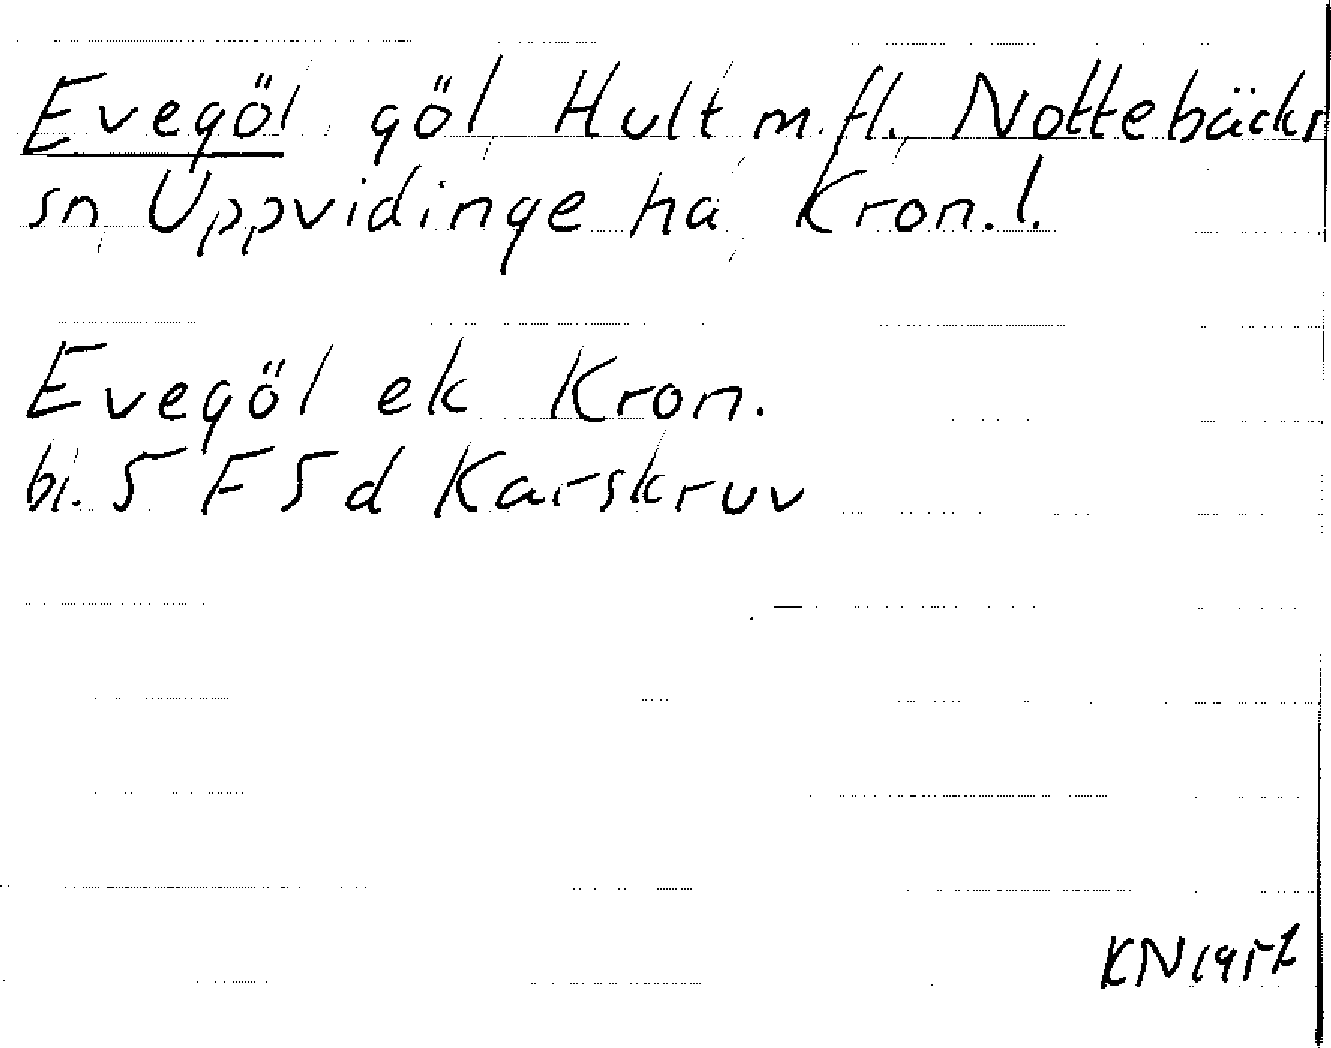 Evegöl göl Hult m.fl. Nottebäcks
sn Uppvidinge hd Kron.l.
Evegöl ek Kron.
bl. 5 F 5 d Karskruv
KN 1957